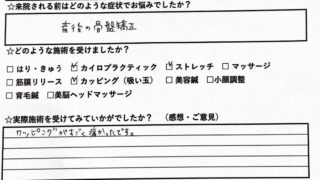 ☆来院される前はどのような症状でお悩みでしたか？
産後の骨盤矯正
☆どのような施術を受けましたか？
□はり・きゅう ☑カイロプラクティック ☑ストレッチ □マッサージ
□筋膜リリース ☑カッピング（吸い玉） □美容鍼 □小顔調整
□育毛鍼 □美脳ヘッドマッサージ
☆実際施術を受けてみていかがでしたか？（感想・ご意見）
カッピングがすごく痛かったです。